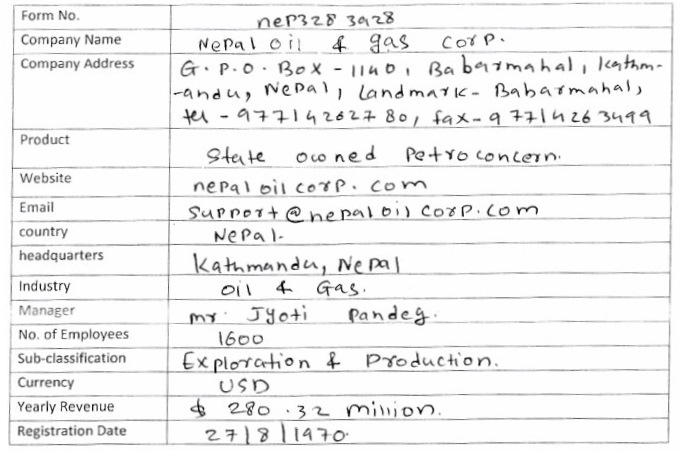 Form No. nep328 3928
Company Name Nepal oil & gas corp.
Company Address G.P.O. Box - 1140, Babarmahal, Kathm-
-andu, Nepal, Landmark - Babarmahal,
tel - 97714262780, fax - 97714263499
Product State owned Petroconcern.
Website nepaloilcorp.com
Email support@nepaloilcorp.com
country Nepal.
headquarters Kathmandu, Nepal
Industry oil & Gas.
Manager mr. Jyoti Pandey.
No. of Employees 1600
Sub-classification Exploration & Production.
Currency USD
Yearly Revenue $ 280.32 million.
Registration Date 27|8|1970.